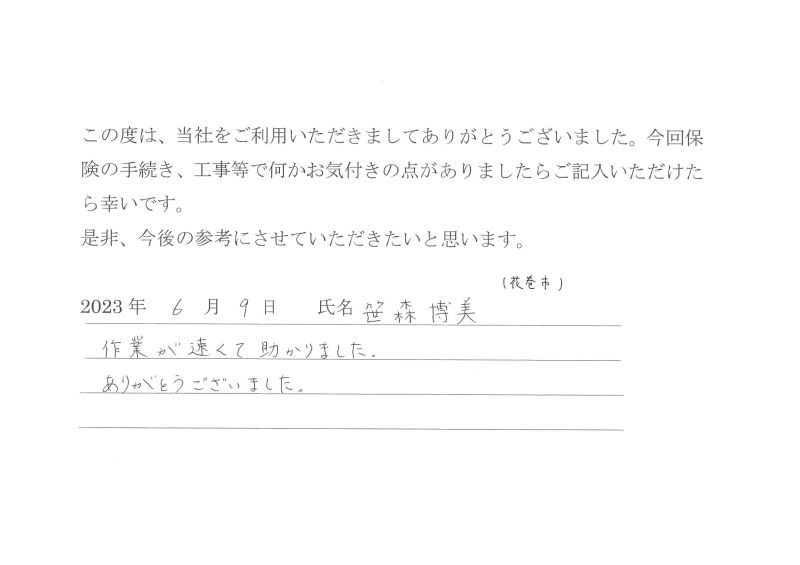 この度は、当社をご利用いただきましてありがとうございました。今回保
険の手続き、工事等で何かお気付きの点がありましたらご記入いただけた
ら幸いです。
是非、今後の参考にさせていただきたいと思います。
(花巻市)
2023年 6月 9日 氏名 笹森 博美
作業が速くて助かりました。
ありがとうございました。